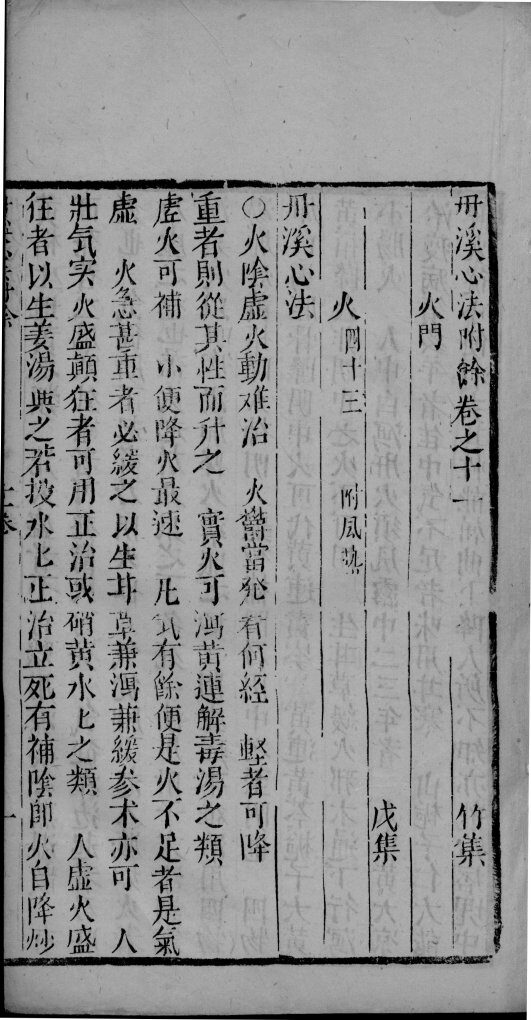 丹溪心法附餘卷之十一　竹集
火門
戊集
火四十三　附風熱
丹溪心法
○火陰虛火動难治　火鬱當発看何経　輕者可降
重者則從其性而升之　實火可瀉黃連解毒湯之類
虛火可補　小便降火最速　凡氣有餘便是火不足者是氣
虛　火急甚重者必緩之以生甘草兼瀉兼緩参术亦可　人
壯气实火盛顛狂者可用正治或硝黃水㐀之類　人虛火盛
狂者以生姜湯與之若投水㐀正治立死有補陰即火自降炒